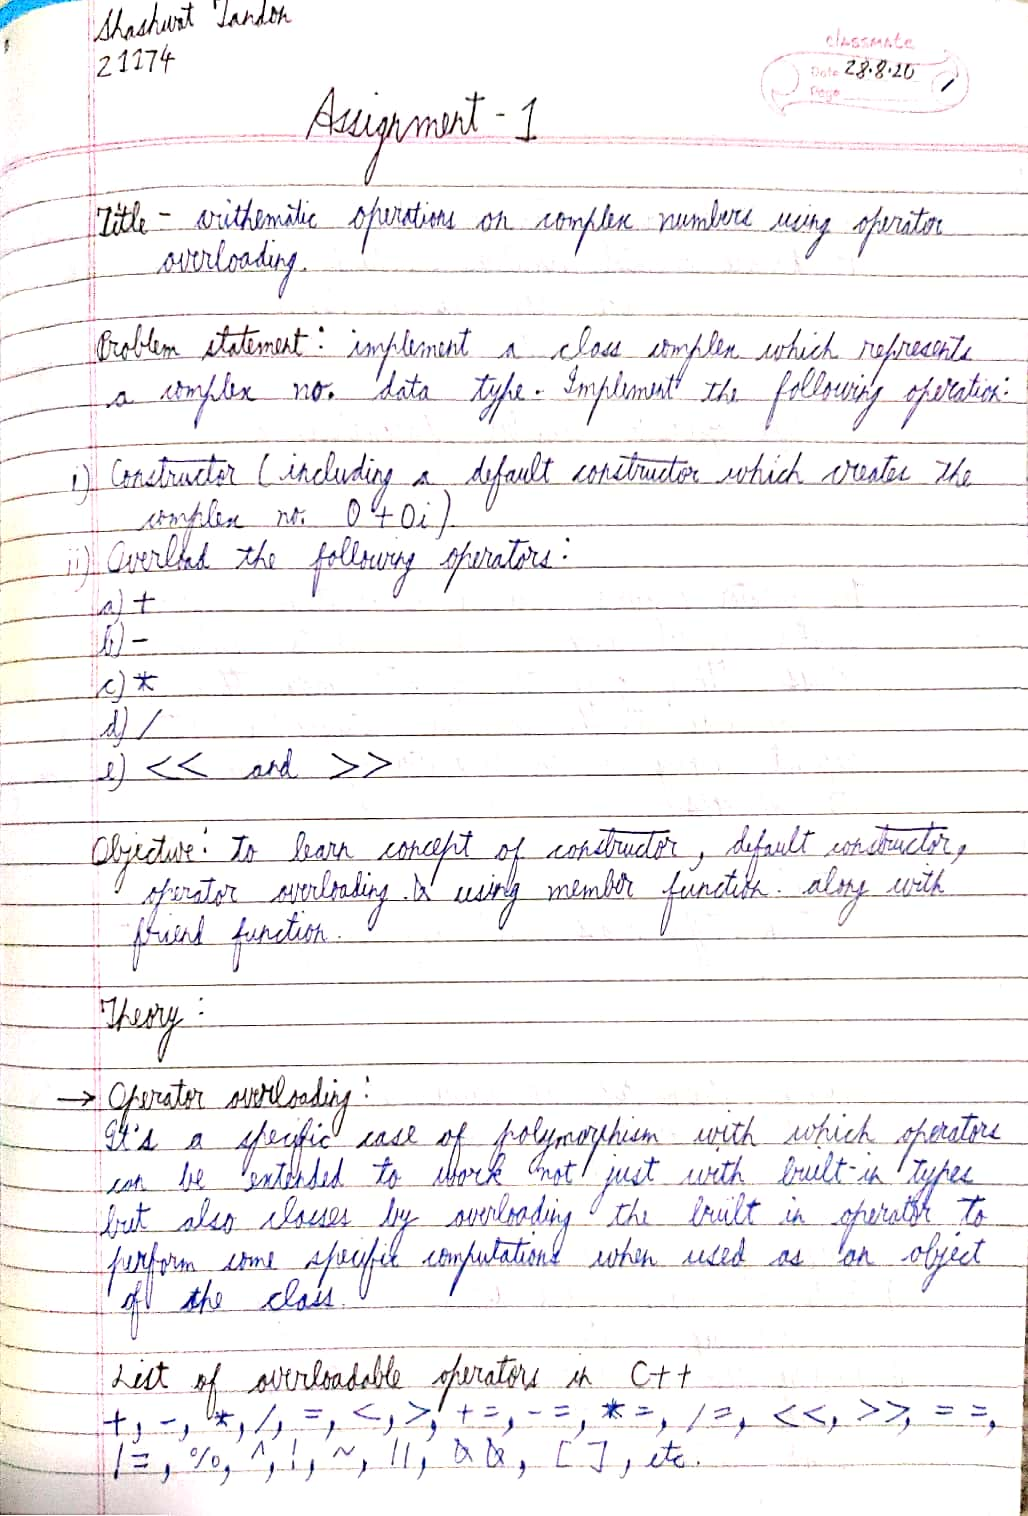 Shashwat Tandon
21174
classmate
Date 28.8.20
Page
Assignment - 1
Title - arithematic operations on complex numbers using operator
overloading.
Problem statement: implement a class complex which represents
a complex no. data type. Implement the following operation:
i) Constructor (including a default constructor which creates the
complex no. 0+0i)
ii) Overload the following operators:
a) +
b) -
c) *
d) /
e) << and >>
Objective: To learn concept of constructor, default constructor,
operator overloading. & using member function. along with
friend function.
Theory:
→ Operator overloading:
It's a specific case of polymorphism with which operators
can be extended to work not just with built-in types
but also classes by overloading the built in operator to
perform some specific computations when used as an object
of the class.
List of overloadable operators in C++
+, -, *, /, =, <, >, +=, -=, *=, /=, <<, >>, ==,
!=, %, ^, !, ~, ||, &&, [], etc.